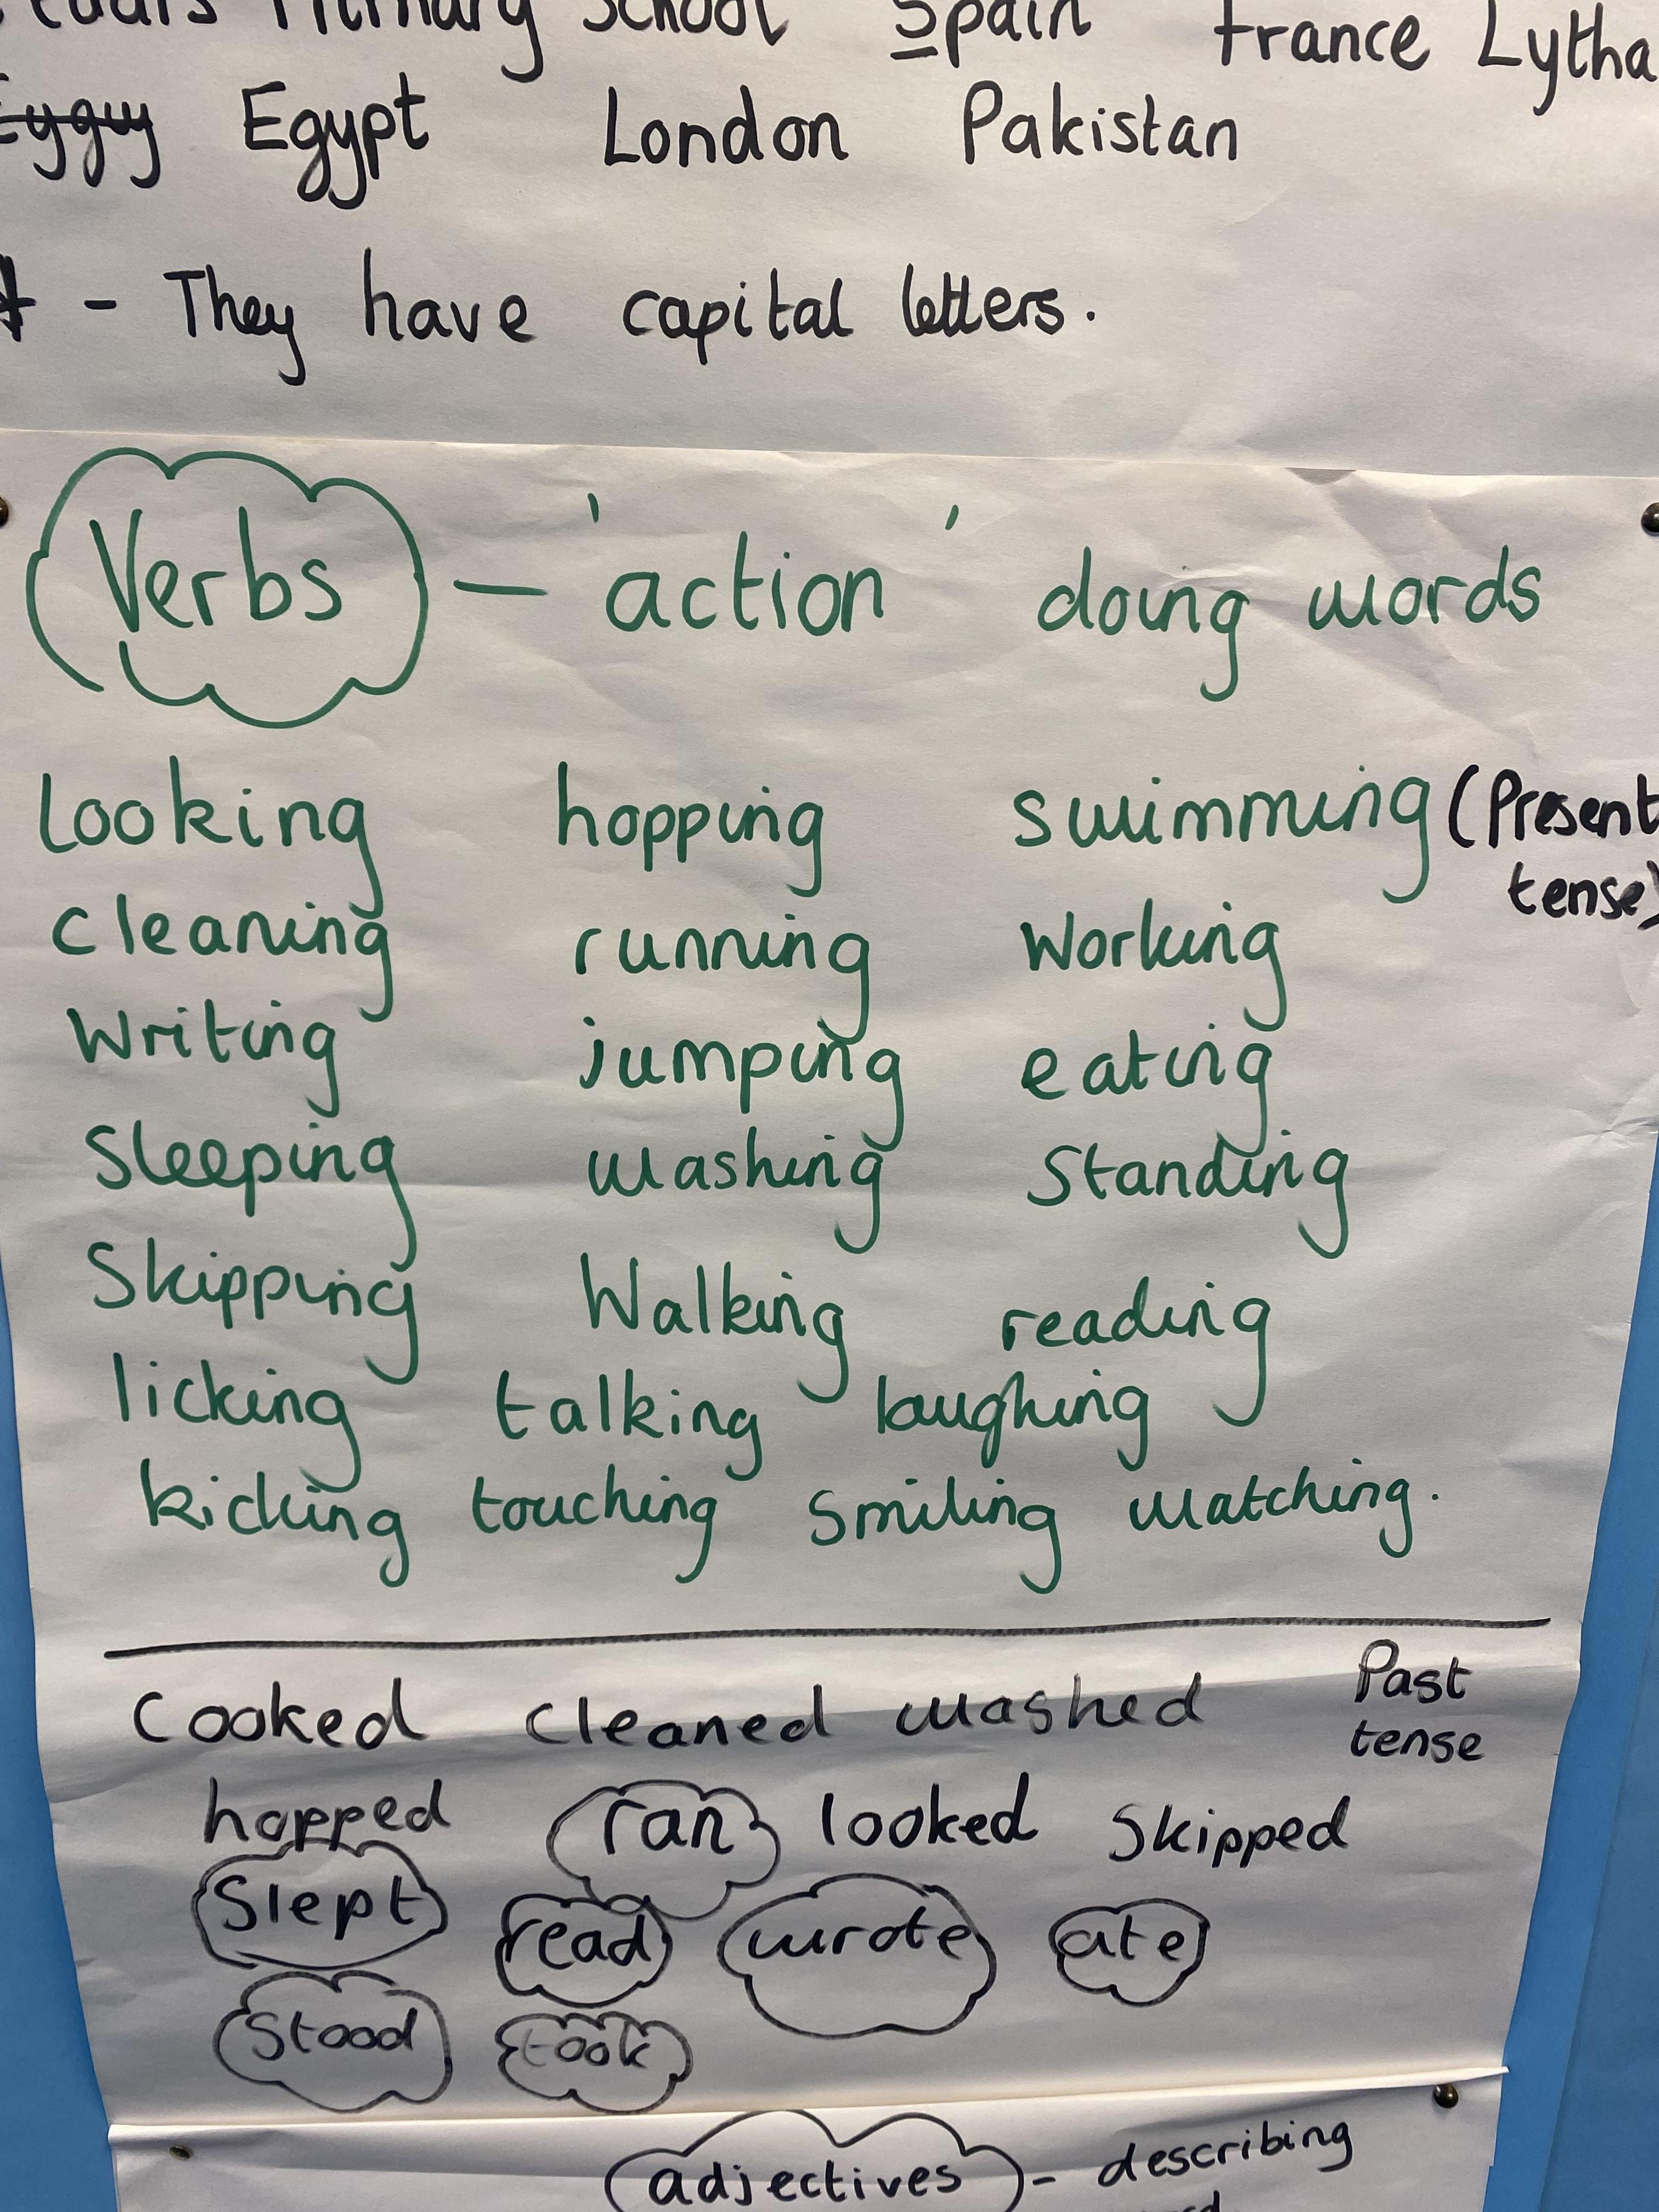 Primary School Spain France
Egypt London Pakistan
- They have capital letters.
Verbs - 'action' doing words
Looking hopping swimming (Present
tense)
cleaning running working
Writing jumping eating
Sleeping washing Standing
Skipping Walking reading
licking talking laughing
kicking touching smiling watching.
Cooked cleaned washed Past
tense
hopped ran looked Skipped
Slept read wrote ate
Stood took
adjectives - describing